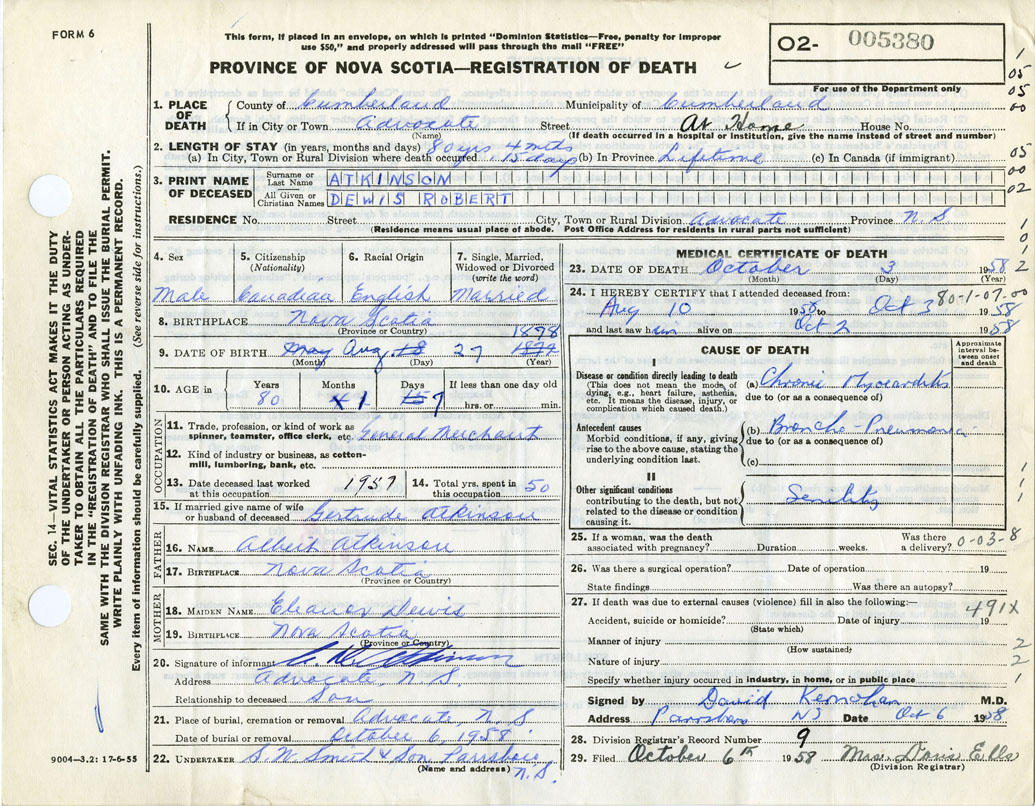 FORM 6
This form, if placed in an envelope, on which is printed "Dominion Statistics—Free, penalty for improper
use $50," and properly addressed will pass through the mail "FREE"
PROVINCE OF NOVA SCOTIA—REGISTRATION OF DEATH
O2- 005380
For use of the Department only
1. PLACE OF DEATH { County of Cumberland Municipality of Cumberland
If in City or Town Advocate Street At Home House No.
(Name) (If death occurred in a hospital or institution, give the name instead of street and number)
2. LENGTH OF STAY (in years, months and days) 80 yrs 4 mths
(a) In City, Town or Rural Division where death occurred 15 days (b) In Province Lifetime (c) In Canada (if immigrant)
3. PRINT NAME OF DECEASED { Surname or Last Name ATKINSON
All Given or Christian Names DEWIS ROBERT
RESIDENCE No. Street City, Town or Rural Division Advocate Province N.S
(Residence means usual place of abode. Post Office Address for residents in rural parts not sufficient)
4. Sex 5. Citizenship (Nationality) 6. Racial Origin 7. Single, Married, Widowed or Divorced (write the word)
Male Canadian English Married
8. BIRTHPLACE Nova Scotia
(Province or Country)
1878
9. DATE OF BIRTH May Aug 18 27 1874
(Month) (Day) (Year)
10. AGE in { Years Months Days If less than one day old
80 4 1 15 7 hrs. or min.
OCCUPATION
11. Trade, profession, or kind of work as
spinner, teamster, office clerk, etc. General Merchant
12. Kind of industry or business, as cotton-
mill, lumbering, bank, etc.
13. Date deceased last worked at this occupation 1957 14. Total yrs. spent in this occupation 50
15. If married give name of wife or husband of deceased Gertrude Atkinson
FATHER
16. NAME Albert Atkinson
17. BIRTHPLACE Nova Scotia
(Province or Country)
MOTHER
18. MAIDEN NAME Eleanor Dewis
19. BIRTHPLACE Nova Scotia
(Province or Country)
20. Signature of informant Atkinson
Address Advocate, N.S.
Relationship to deceased Son
21. Place of burial, cremation or removal Advocate, N.S
Date of burial or removal October 6, 1958
22. UNDERTAKER S.W. Smith & Son Parrsboro
(Name and address) N.S.
9004—3.2: 17-6-55
MEDICAL CERTIFICATE OF DEATH
23. DATE OF DEATH October 3 1958
(Month) (Day) (Year)
24. I HEREBY CERTIFY that I attended deceased from: 80-1-07-00
Aug 10 1958 to Oct 3 1958
and last saw him alive on Oct 2 1958
CAUSE OF DEATH
Approximate interval between onset and death
I
Disease or condition directly leading to death (a) Chronic Myocarditis
(This does not mean the mode of
dying, e.g., heart failure, asthenia, due to (or as a consequence of)
etc. It means the disease, injury, or
complication which caused death.)
Antecedent causes (b) Broncho-Pneumonia
Morbid conditions, if any, giving due to (or as a consequence of)
rise to the above cause, stating the
underlying condition last. (c)
II
Other significant conditions Senility
contributing to the death, but not
related to the disease or condition
causing it.
25. If a woman, was the death associated with pregnancy? Duration weeks. Was there a delivery? 0-03-8
26. Was there a surgical operation? Date of operation 19
State findings Was there an autopsy?
27. If death was due to external causes (violence) fill in also the following:— 491X
Accident, suicide or homicide? Date of injury 19
(State which)
Manner of injury
(How sustained)
Nature of injury
Specify whether injury occurred in industry, in home, or in public place
Signed by David Kernohan M.D.
Address Parrsboro NS Date Oct 6 1958
28. Division Registrar's Record Number 9
29. Filed October 6th 1958 Mrs. Doris Ells
(Division Registrar)
SEC. 14—VITAL STATISTICS ACT MAKES IT THE DUTY
OF THE UNDERTAKER OR PERSON ACTING AS UNDER-
TAKER TO OBTAIN ALL THE PARTICULARS REQUIRED
IN THE "REGISTRATION OF DEATH" AND TO FILE THE
SAME WITH THE DIVISION REGISTRAR WHO SHALL ISSUE THE BURIAL PERMIT.
WRITE PLAINLY WITH UNFADING INK. THIS IS A PERMANENT RECORD.
Every item of information should be carefully supplied. (See reverse side for instructions.)
1
05
05
00
05
00
02
1
0
2
1
1
1
8
2
2
1